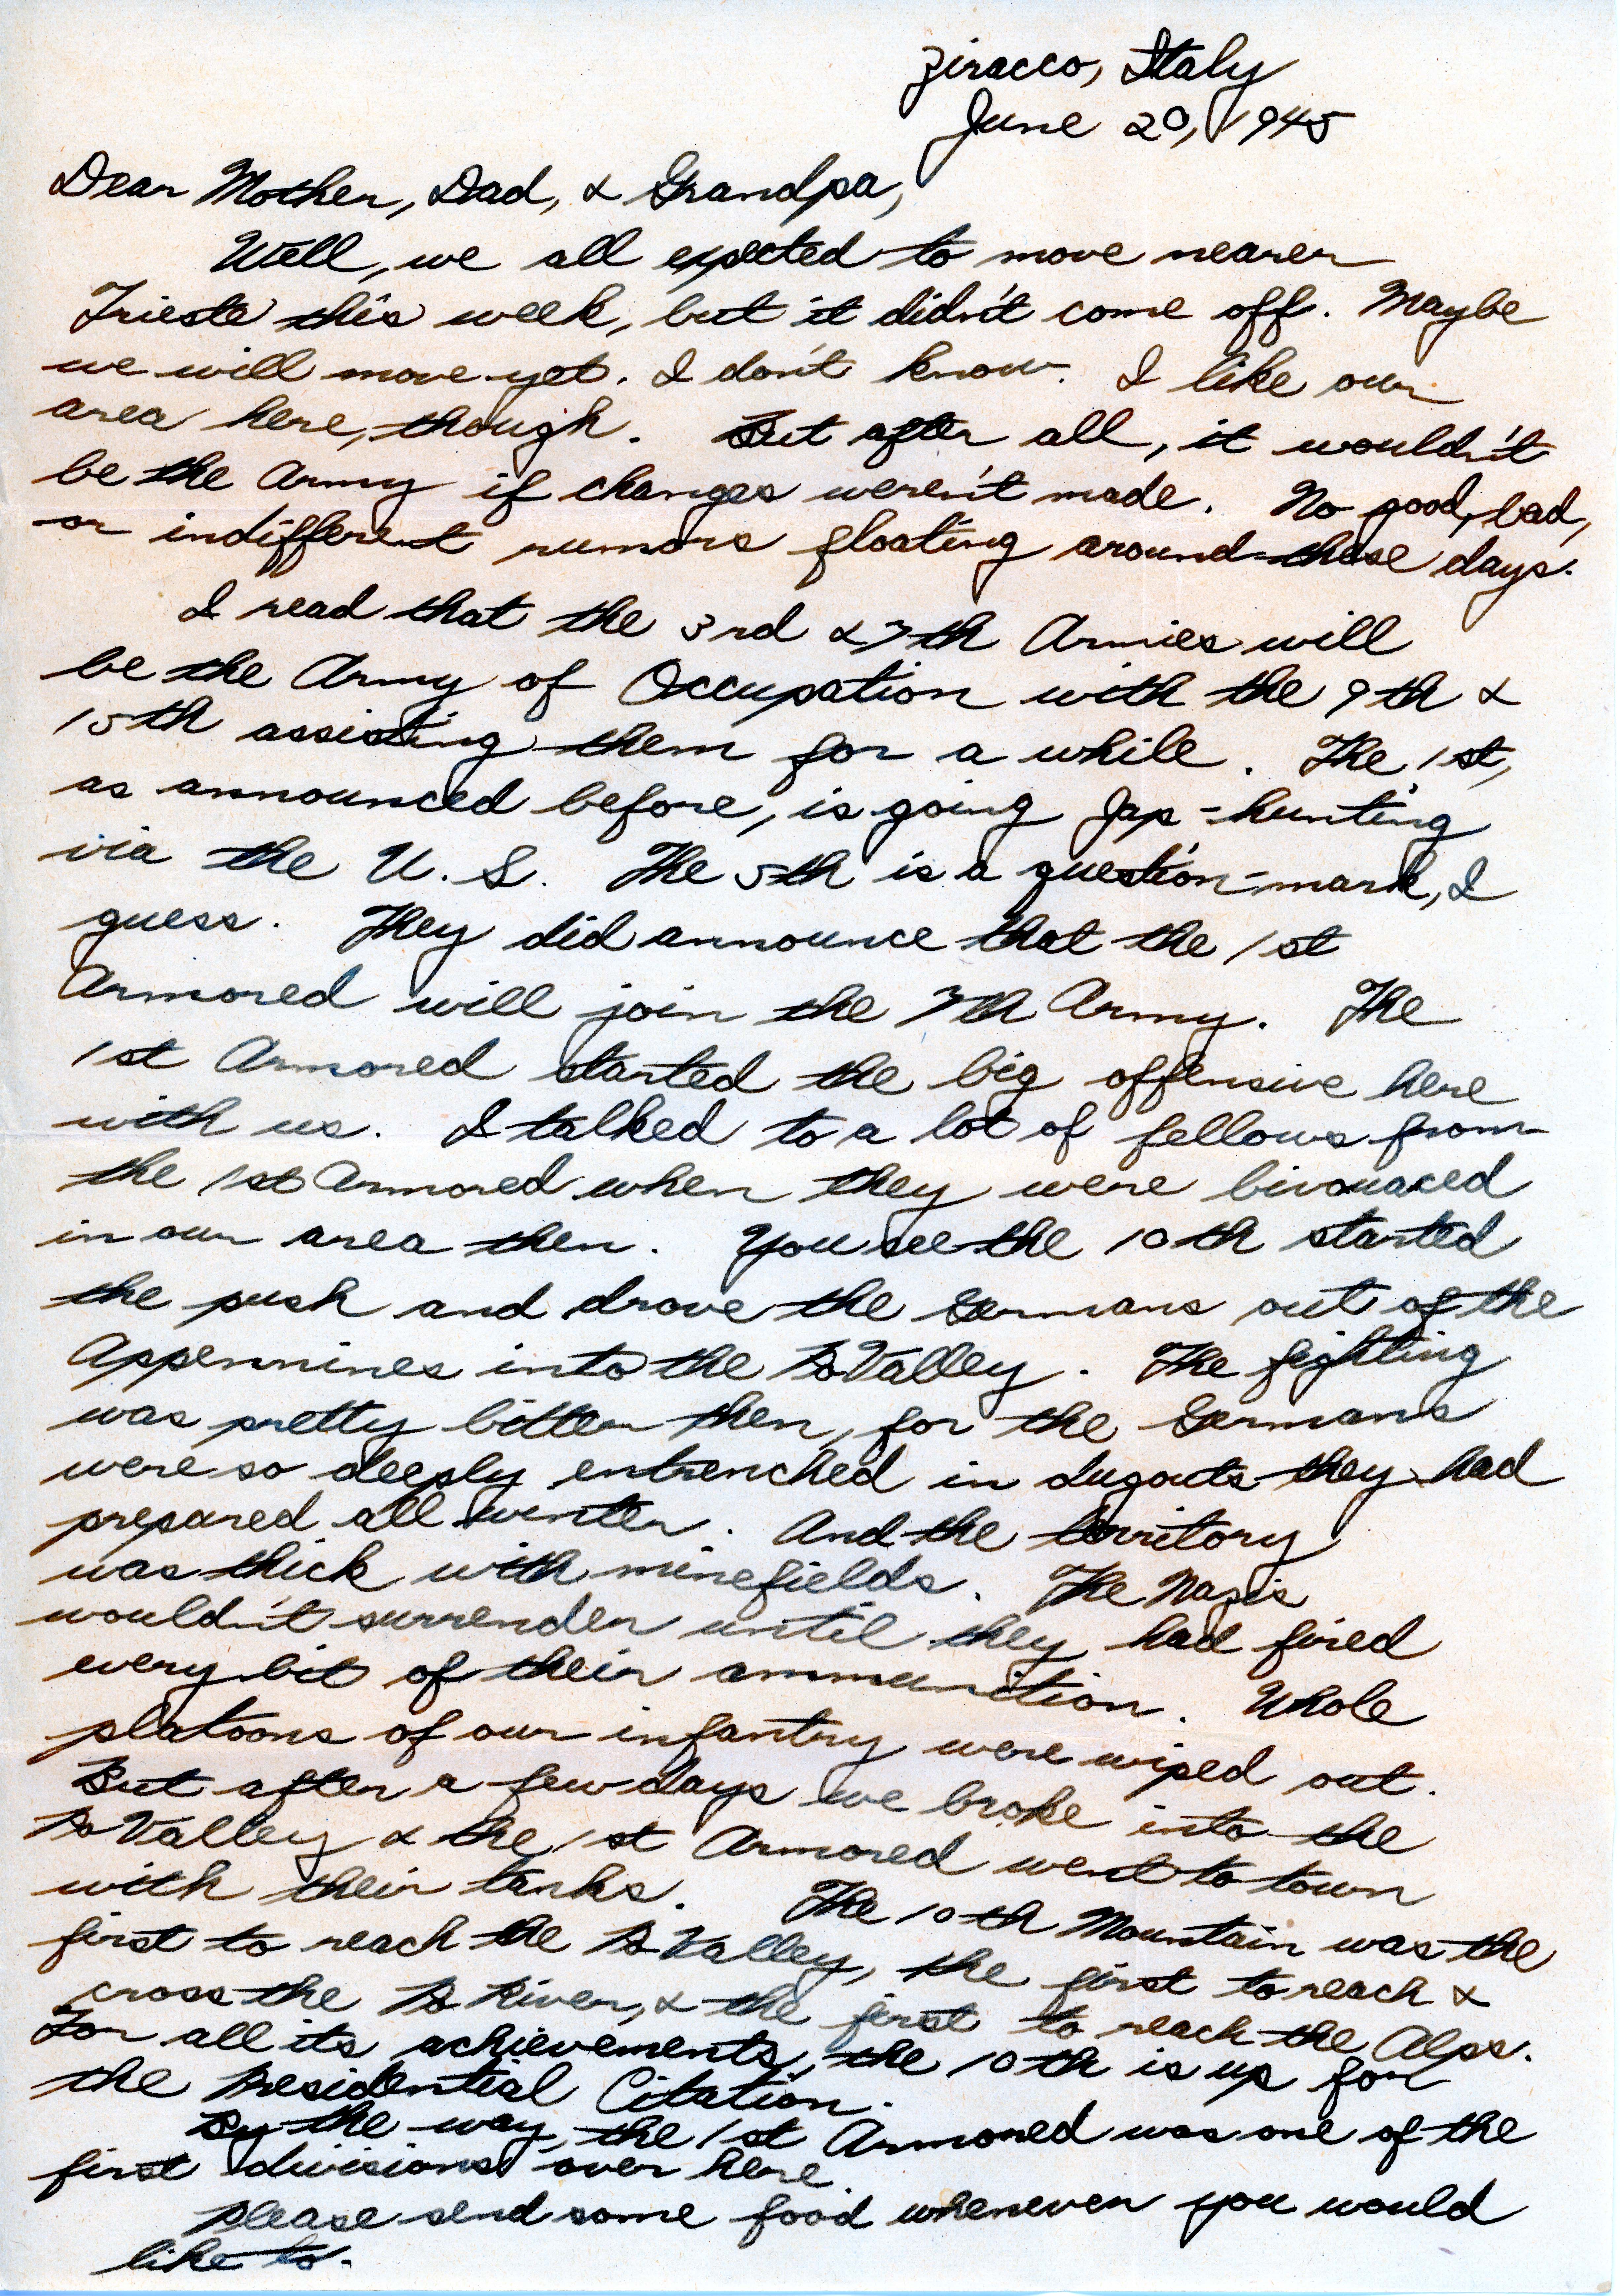 Ziracco, Italy
June 20, 1945
Dear Mother, Dad, & Grandpa,
Well, we all expected to move nearer
Trieste this week, but it didn't come off. Maybe
we will move yet. I don't know. I like our
area here, though. But after all, it wouldn't
be the Army if changes weren't made. No good, bad,
or indifferent rumors floating around these days.
I read that the 3rd & 7th Armies will
be the Army of Occupation with the 9th &
15th assisting them for a while. The 1st,
as announced before, is going Jap-hunting
via the U.S. The 5th is a question-mark, I
guess. They did announce that the 1st
Armored will join the 7th Army. The
1st Armored started the big offensive here
with us. I talked to a lot of fellows from
the 1st Armored when they were bivouaced
in our area then. You see the 10th started
the push and drove the Germans out of the
Appennines into the Po Valley. The fighting
was pretty bitter then, for the Germans
were so deeply entrenched in dugouts they had
prepared all winter. And the territory
was thick with minefields. The Nazis
wouldn't surrender until they had fired
every bit of their ammunition. Whole
platoons of our infantry were wiped out.
But after a few days we broke into the
Po Valley & the 1st Armored went to town
with their tanks. The 10th Mountain was the
first to reach the Po Valley, the first to reach &
cross the Po River, & the first to reach the Alps.
For all its achievements, the 10th is up for
the Presidential Citation.
By the way, the 1st Armored was one of the
first divisions over here.
Please send some food whenever you would
like to.